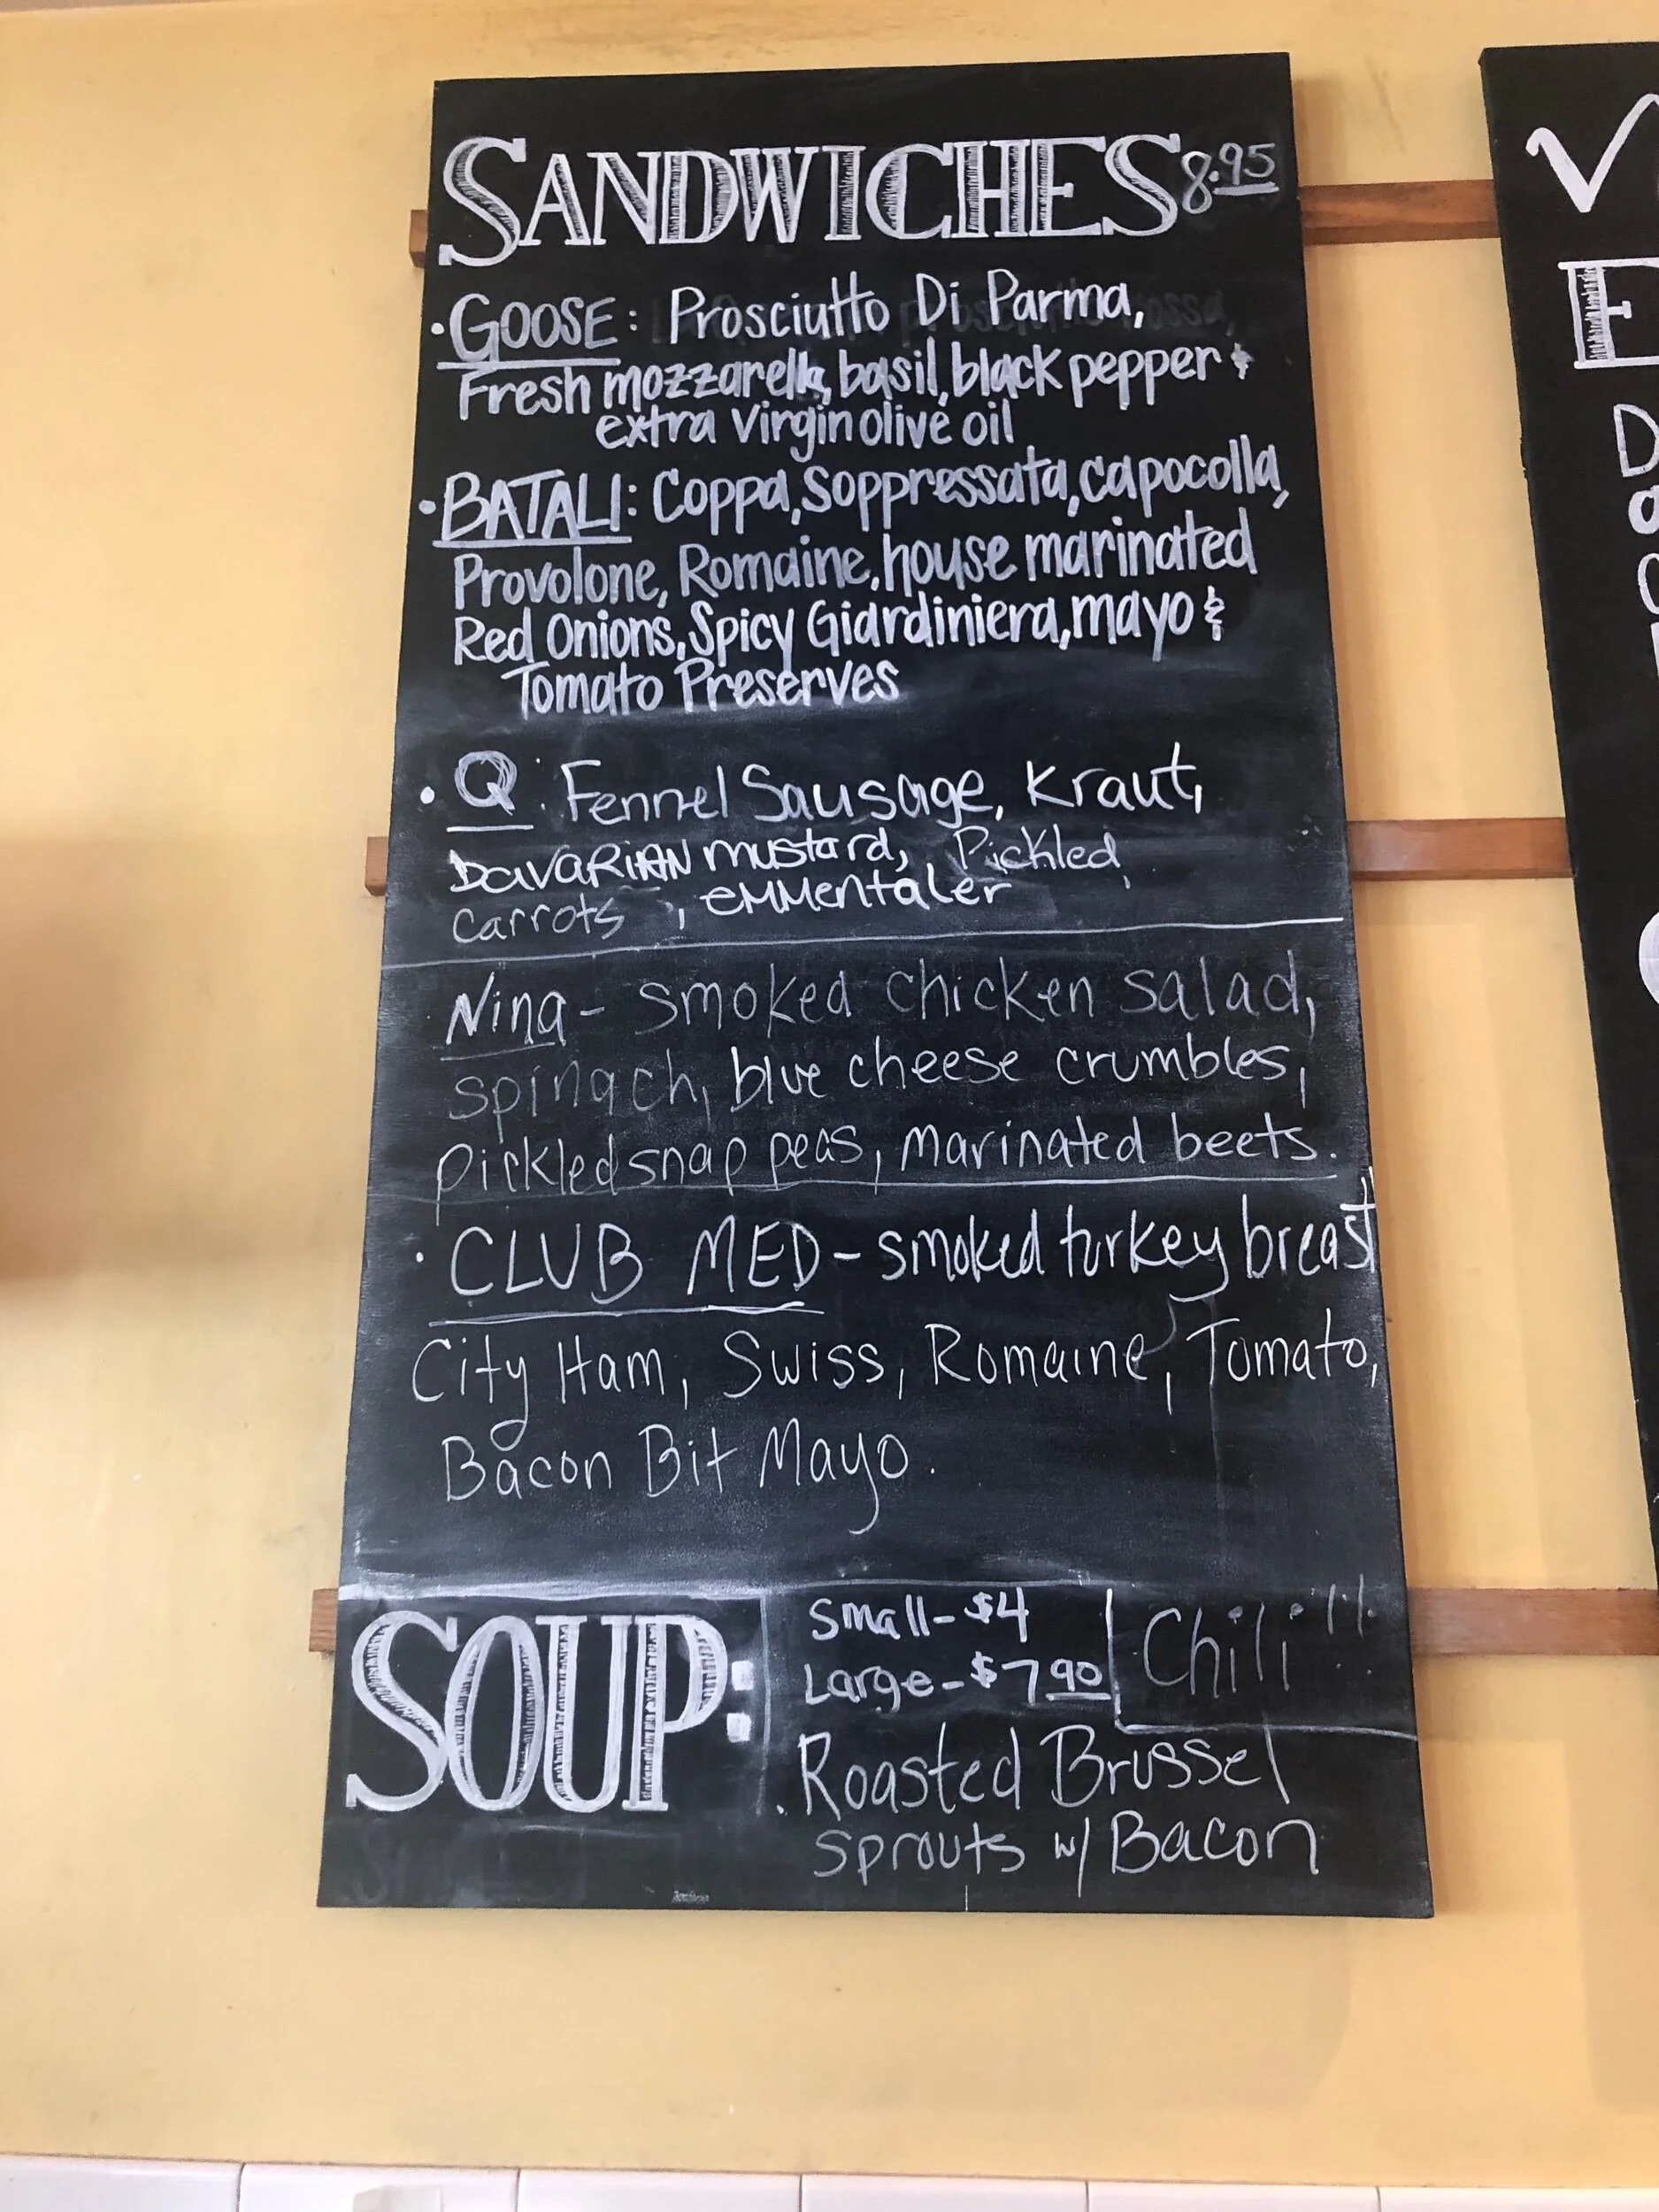 SANDWICHES 8.95
• GOOSE: Prosciutto Di Parma,
Fresh mozzarella, basil, black pepper &
extra virgin olive oil
• BATALI: Coppa, Soppressata, capocolla,
Provolone, Romaine, house marinated
Red Onions, Spicy Giardiniera, mayo &
Tomato Preserves
• Q: Fennel Sausage, Kraut,
BavaRiAN mustard, Pickled
carrots, emmentaler
Nina- smoked chicken salad,
spinach, blue cheese crumbles,
pickled snap peas, marinated beets.
• CLUB MED - smoked turkey breast
City Ham, Swiss, Romaine, Tomato,
Bacon Bit Mayo.
SOUP:
Small-$4
Large-$7.90
Chili!!
. Roasted Brussel
sprouts w/ Bacon